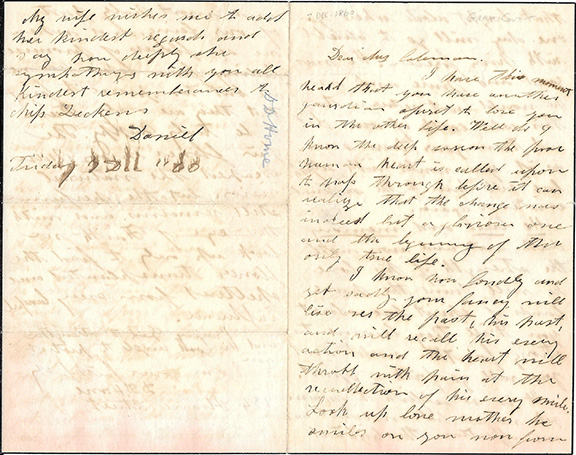 My wife wishes me to add
her kindest regards and
say how deeply she
sympathays with you all
kindest remembrances to
Miss Dickens
Daniel
D D Home
Friday
Dear Mrs Coleman.
I have this moment
heard that you have another
guardian spirit to love you
in the other life. Well do I
know the deep sorrow the poor
human heart is called upon
to pass through before it can
realize that the change was
indeed but a glorious one
and the begining of the
only true life.
I know how fondly and
yet sadly your fancy will
live over the past, his past,
and will recall his every
action and the heart will
throbb with pain at the
recollection of his every smile.
Look up love mother he
smiles on you now from